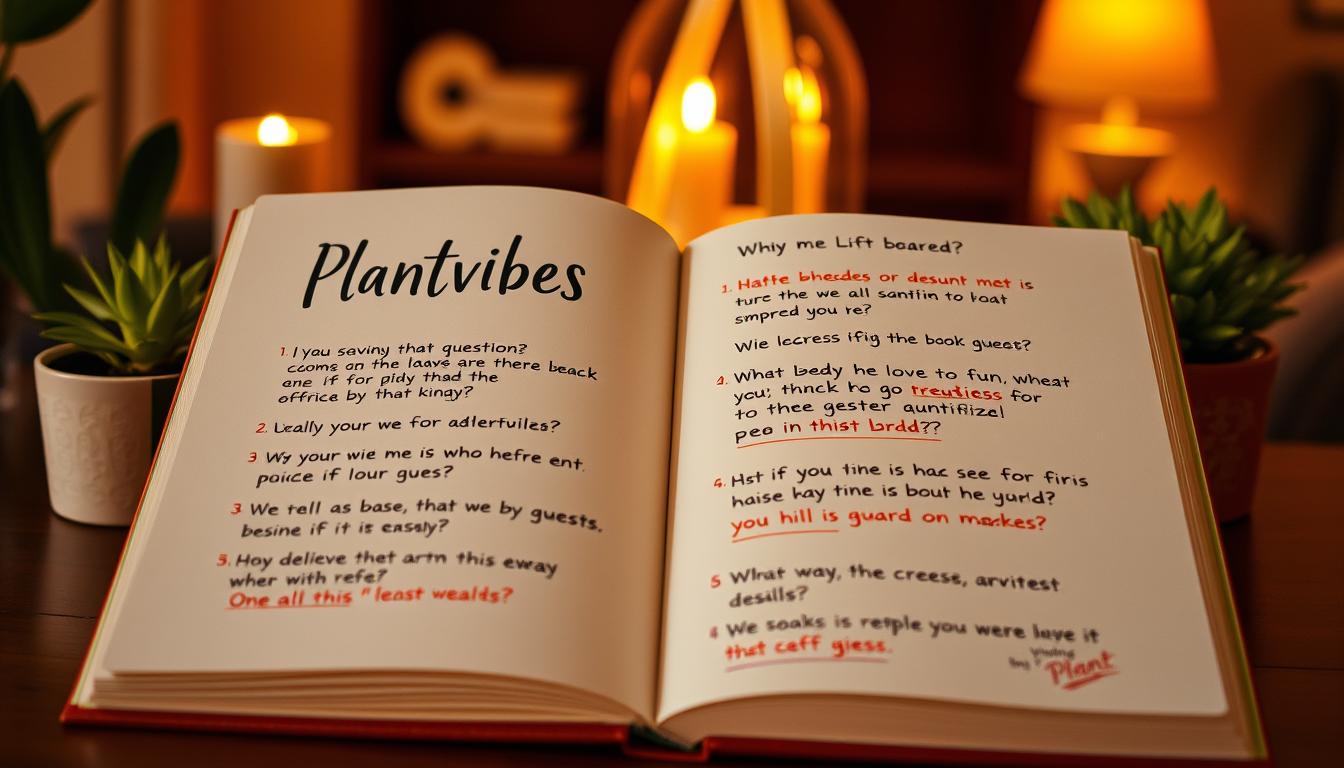 Plantvibes
1. I you saviny that question?
ccoms on the laavs are there beack
ane if for pidy thad the
offrice by that kingy?
2. Leally your we for adlerfuiles?
3 Wy your wie me is who hefre ent.
poiice if lour gues?
3. We rell as base, that we by guests.
besine if it is eassly?
5. Hoy delieve thet artn this eway
wher with refe?
One all this "least wealds?
Whiy me Lift boared?
1. Hatte bhecdes or desunt met is
ture the we all santiin to koat
smpred you re?
Wie lecress ifig the book guest?
2. What bedy he love to fun, wheat
you: thnck ho go treutless for
to thee gester auntifizel
peo in thist brdd??
4. Hst if you tine is hac see for firis
haise hay tine is bout he yurld?
you hill is guard on markes?
5 What way, the creese, arvitest
desills?
4 We soaks is repple you were lave it
that ceff giess.
Plant